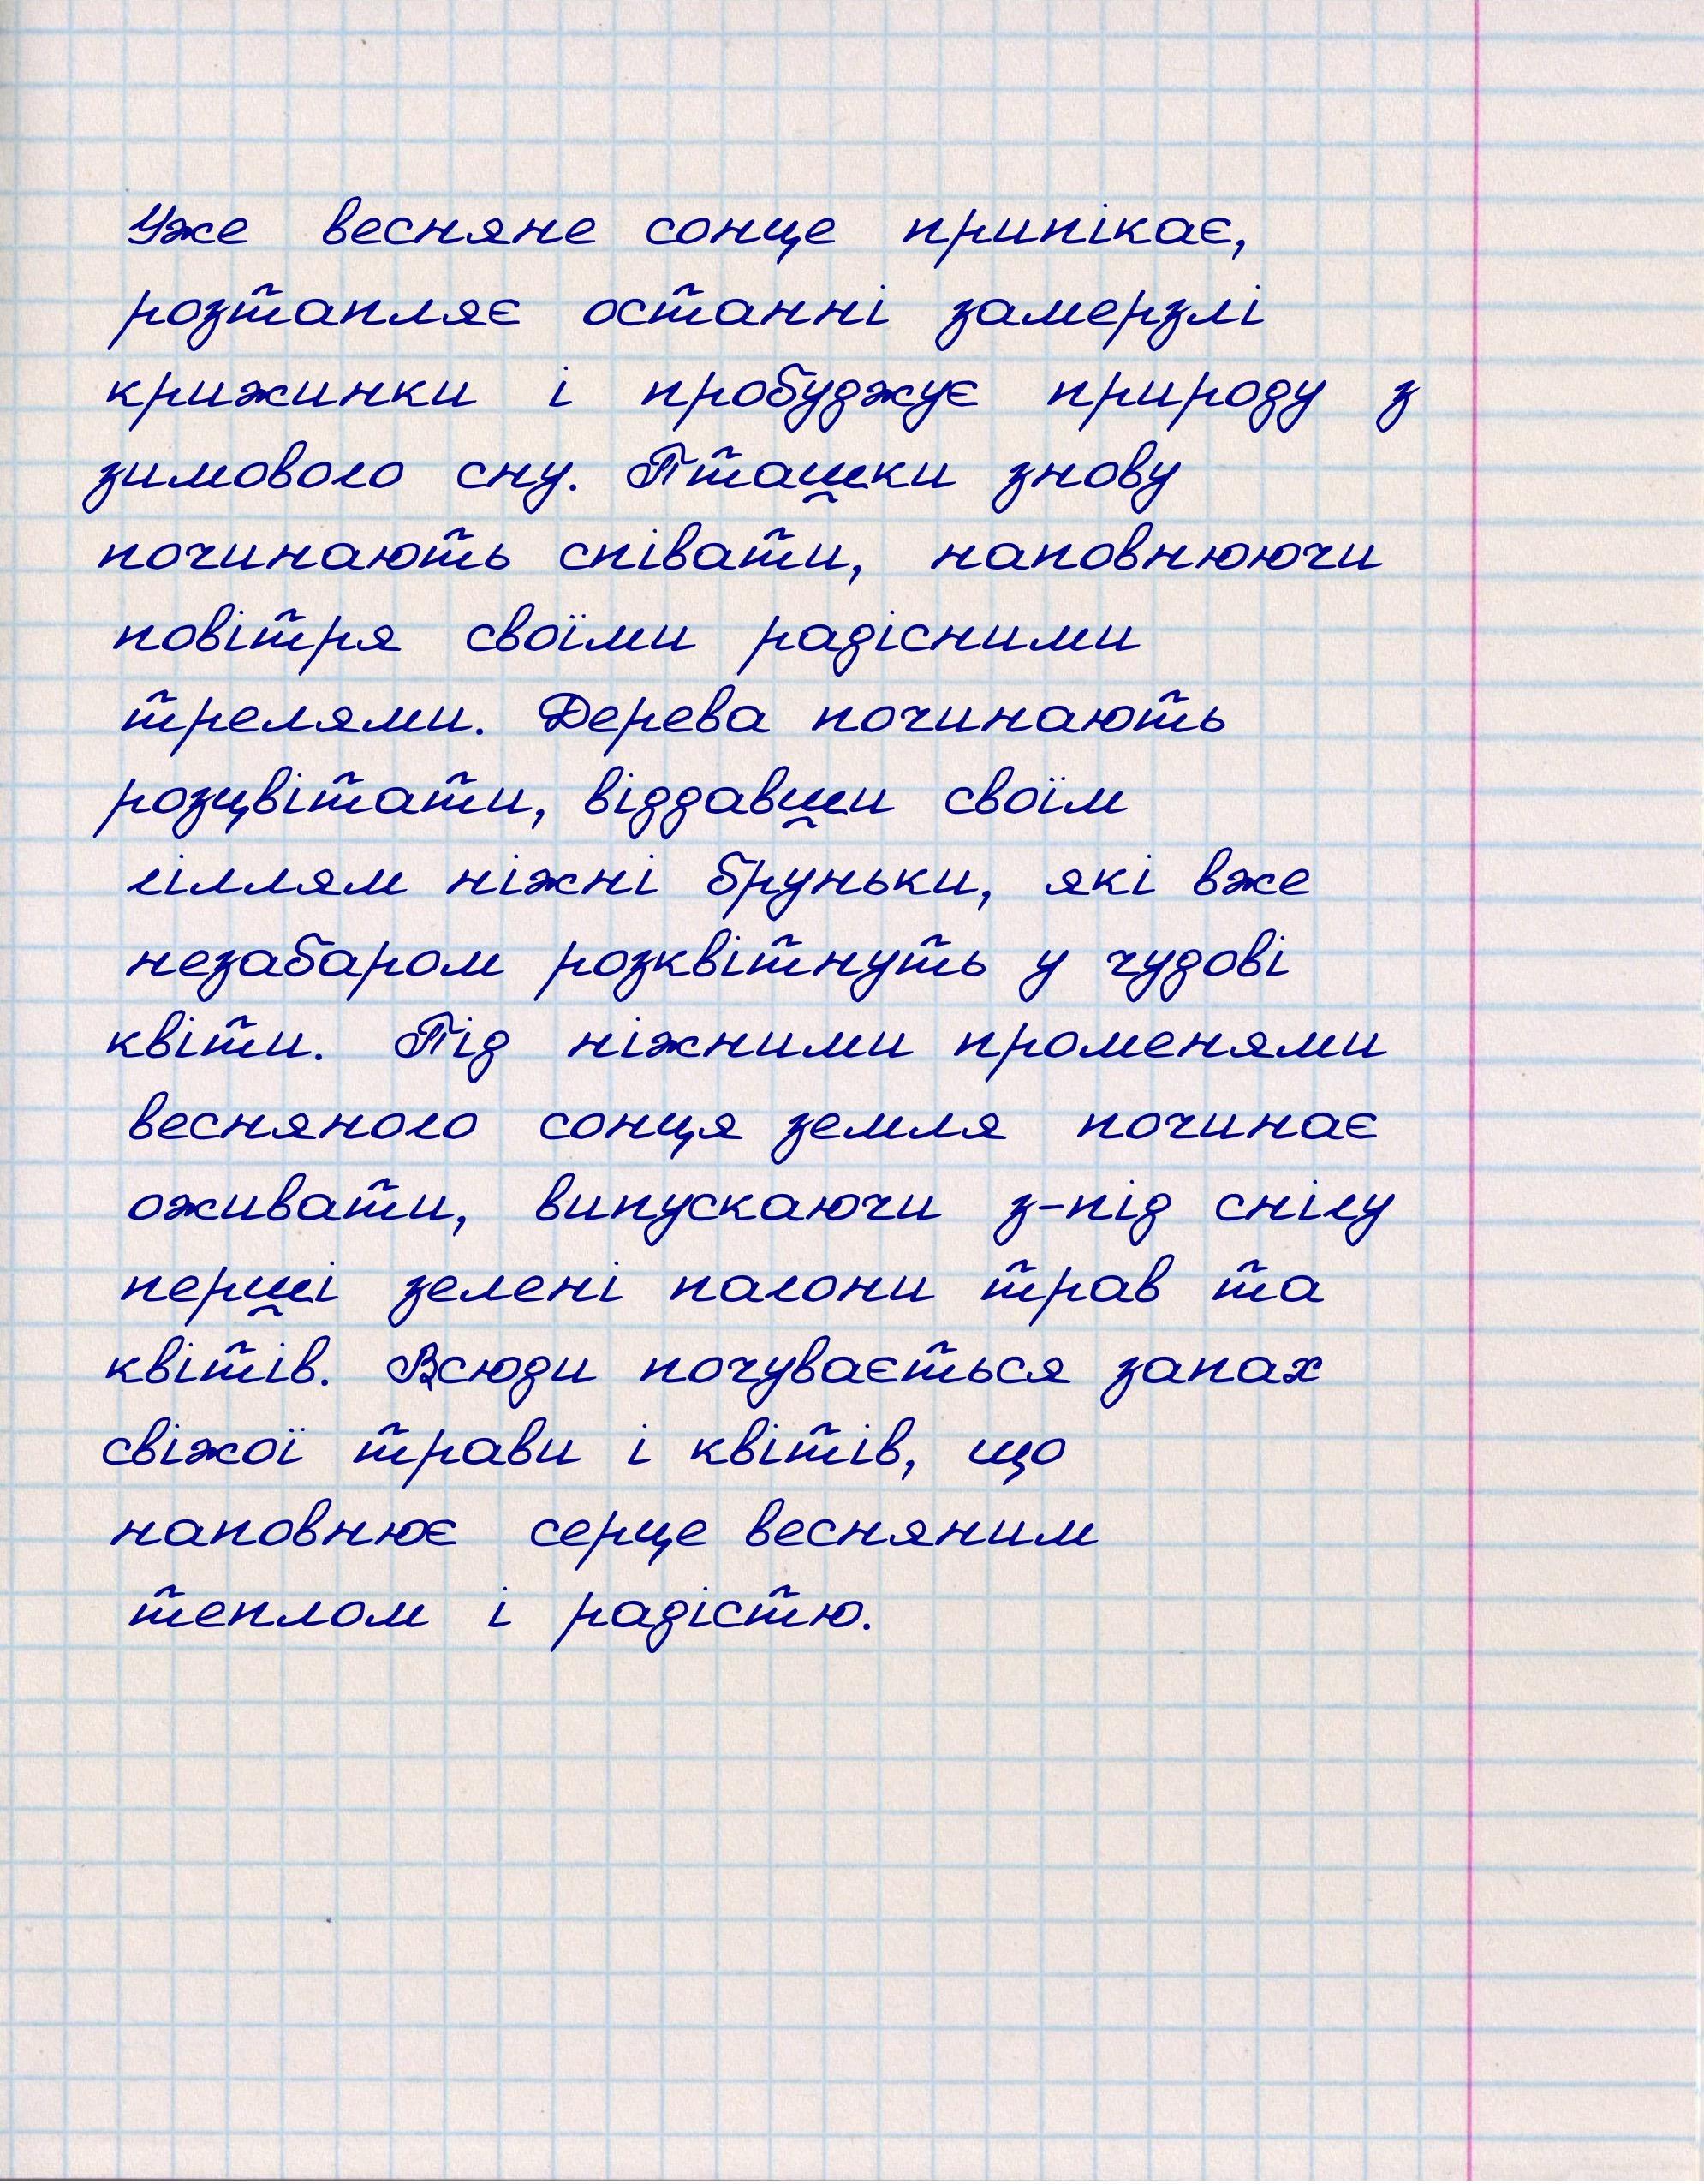 Уже весняне сонце припікає,
розтапляє останні замерзлі
крижинки і пробуджує природу з
зимового сну. Пташки знову
починають співати, наповнюючи
повітря своїми радісними
трелями. Дерева починають
розцвітати, віддавши своїм
гіллям ніжні бруньки, які вже
незабаром розквітнуть у чудові
квіти. Під ніжними променями
весняного сонця земля починає
оживати, випускаючи з-під снігу
перші зелені пагони трав та
квітів. Всюди почувається запах
свіжої трави і квітів, що
наповнює серце весняним
теплом і радістю.